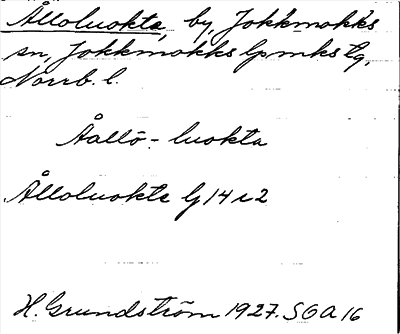 Ålloluokta, by, Jokkmokks
sn, Jokkmokks lpmks tg,
Norrb. l.
Åallō-luokta
Ålloluokta Gj 14 r 2
H. Grundström 1927. SOA 16